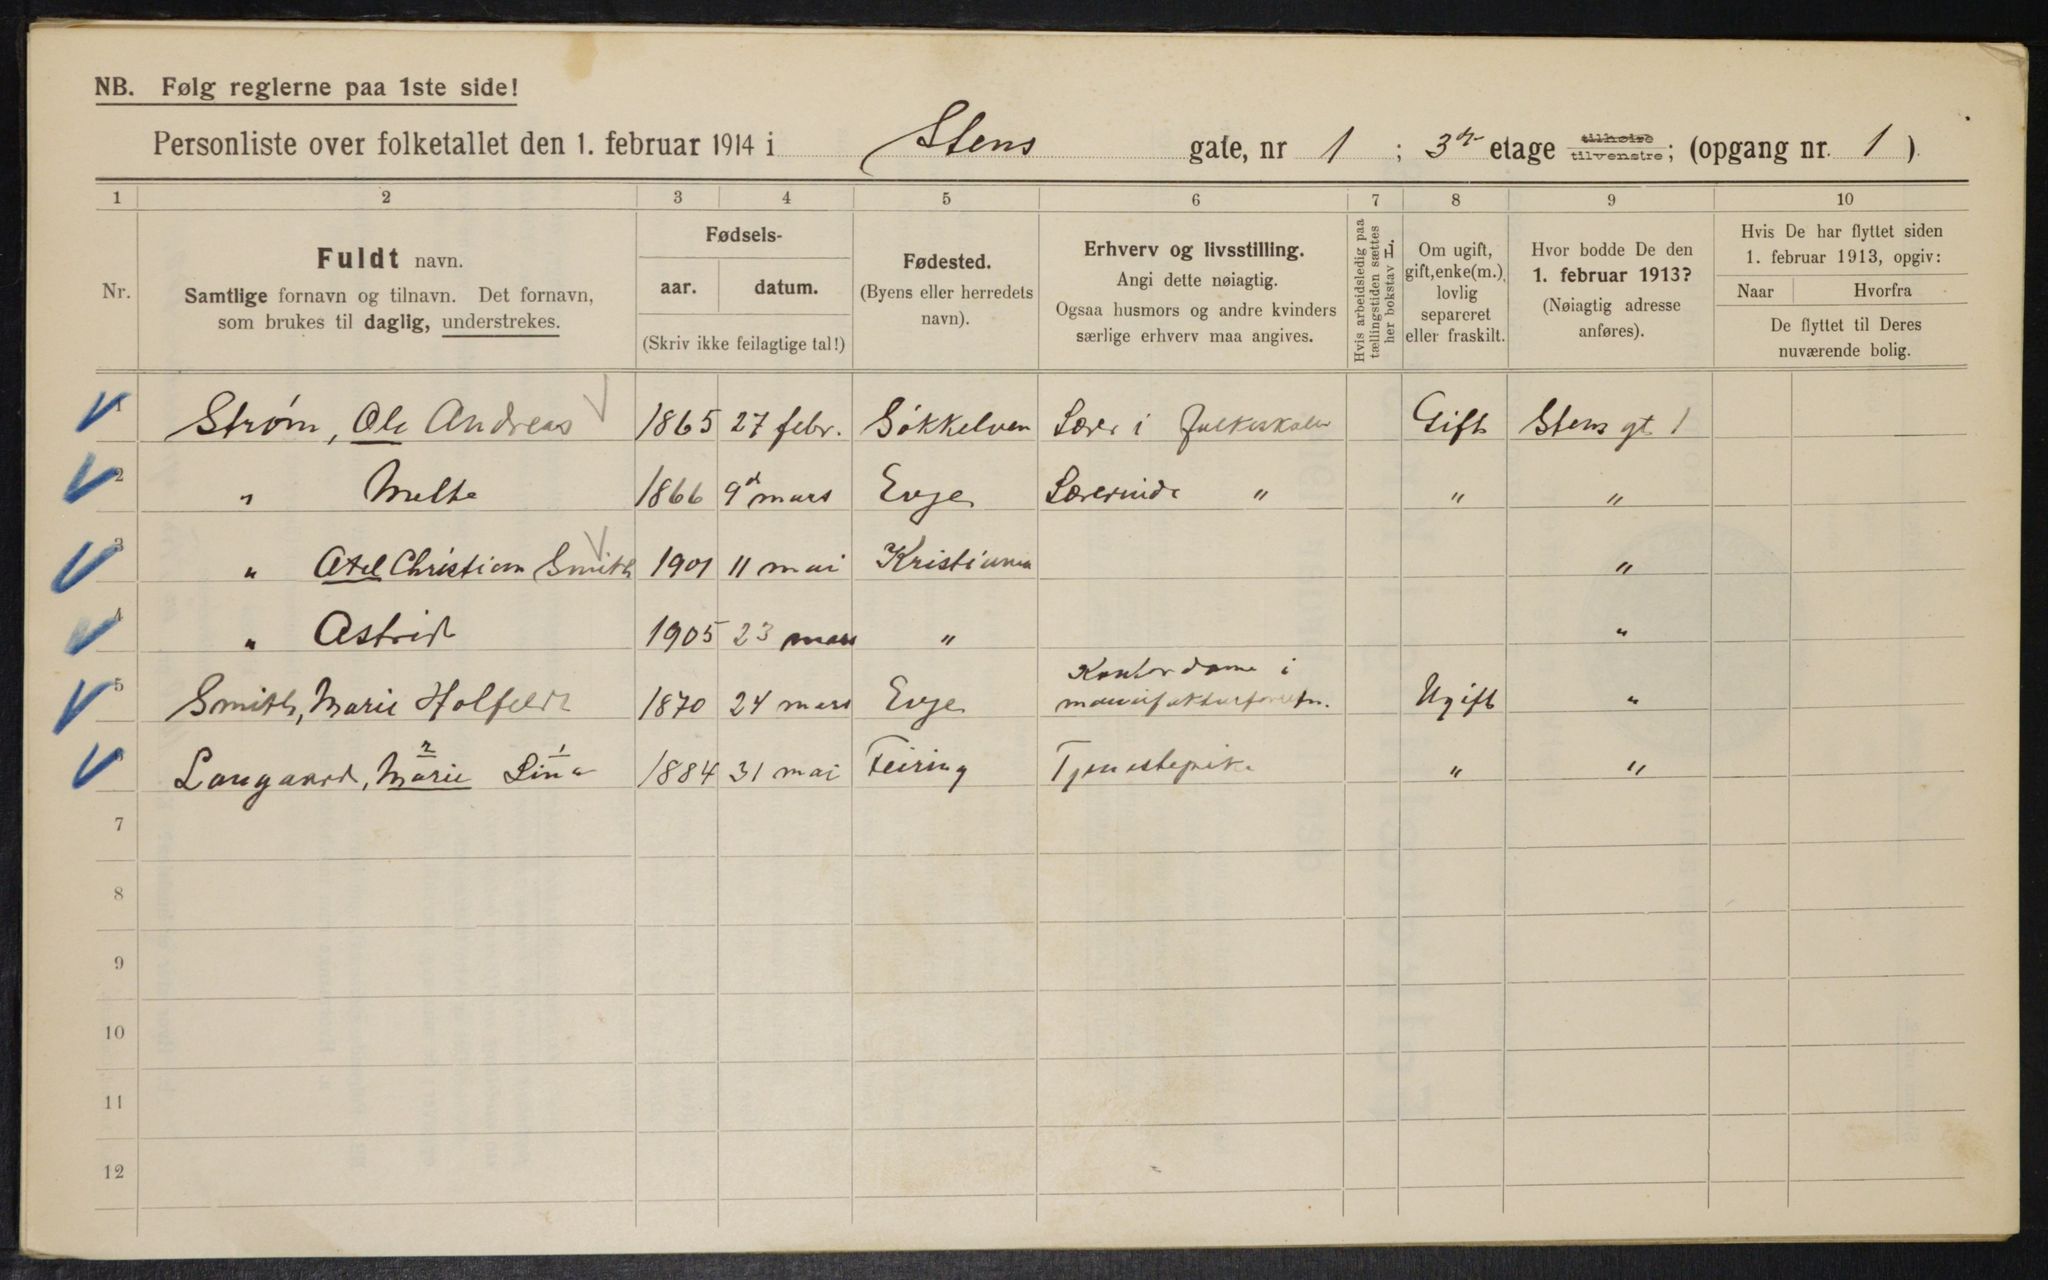 NB. Følg reglerne paa 1ste side!
Personliste over folketallet den 1. februar 1914 i Stens gate, nr 1 ; 3dje etage tilhøire tilvenstre; (opgang nr. 1 ).
1 2 3 4 5 6 7 8 9 10
Nr.
Fuldt navn.
Samtlige fornavn og tilnavn. Det fornavn,
som brukes til daglig, understrekes.
Fødsels-
aar. datum.
(Skriv ikke feilagtige tal!)
Fødested.
(Byens eller herredets
navn).
Erhverv og livsstilling.
Angi dette nøiagtig.
Ogsaa husmors og andre kvinders
særlige erhverv maa angives.
Hvis arbeidsledig paa
tællingstiden sættes
her bokstav L.
Om ugift,
gift, enke(m.),
lovlig
separeret
eller fraskilt.
Hvor bodde De den
1. februar 1913?
(Nøiagtig adresse
anføres).
Hvis De har flyttet siden
1. februar 1913, opgiv:
Naar Hvorfra
De flyttet til Deres
nuværende bolig.
1 Strøm, Ole Andreas 1865 27 febr. Søkkelven Lærer i folkeskolen Gift Stens gt 1
2 " Melta 1866 9d mars Evje Lærerinde " " "
3 " Axel Christian Smith 1901 11 mai Kristiania "
4 " Astrid 1905 23 mars " "
5 Smith, Marie Holfeldt 1870 24 mars Evje Kontordame i
manufakturforretn. Ugift "
6 Langaard, Marie 2 Lina 1 1884 31 mai Feiring Tjenestepike " "
7
8
9
10
11
12